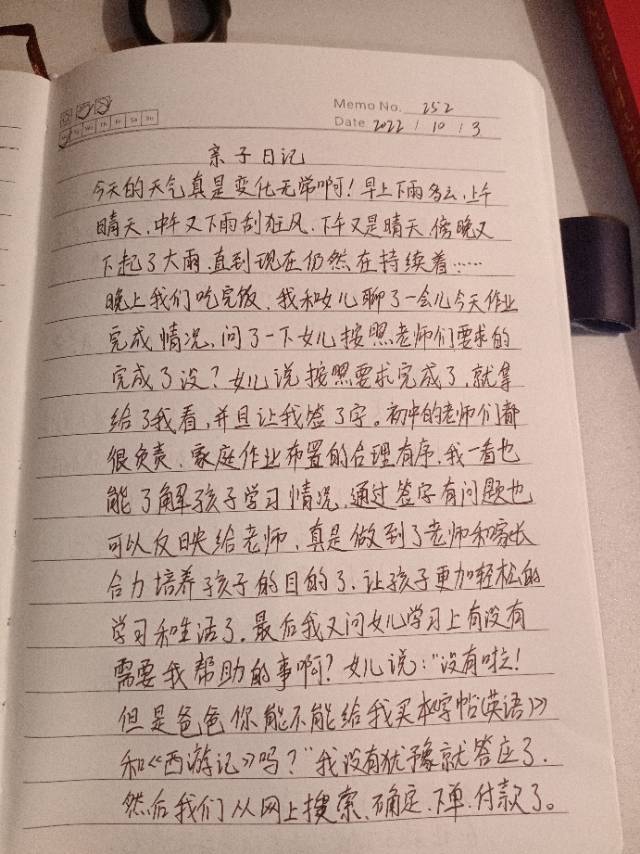 Memo No. 252
Mo Tu We Th Fr Sa Su
Date 2022 / 10 / 3
亲子日记
今天的天气真是变化无常啊！早上下雨多云，上午
晴天，中午又下雨刮狂风，下午又是晴天，傍晚又
下起了大雨，直到现在仍然在持续着……
晚上我们吃完饭，我和女儿聊了一会儿今天作业
完成情况，问了一下女儿按照老师们要求的
完成了没？女儿说按照要求完成了，就拿
给了我看，并且让我签了字。初中的老师们都
很负责，家庭作业布置的合理有序，我一看也
能了解孩子学习情况，通过签字有问题也
可以反映给老师，真是做到了老师和家长
合力培养孩子的目的了，让孩子更加轻松的
学习和生活了。最后我又问女儿学习上有没有
需要我帮助的事啊？女儿说：“没有啦！
但是爸爸你能不能给我买本字帖《英语》
和《西游记》吗？”我没有犹豫就答应了，
然后我们从网上搜索、确定、下单、付款了。